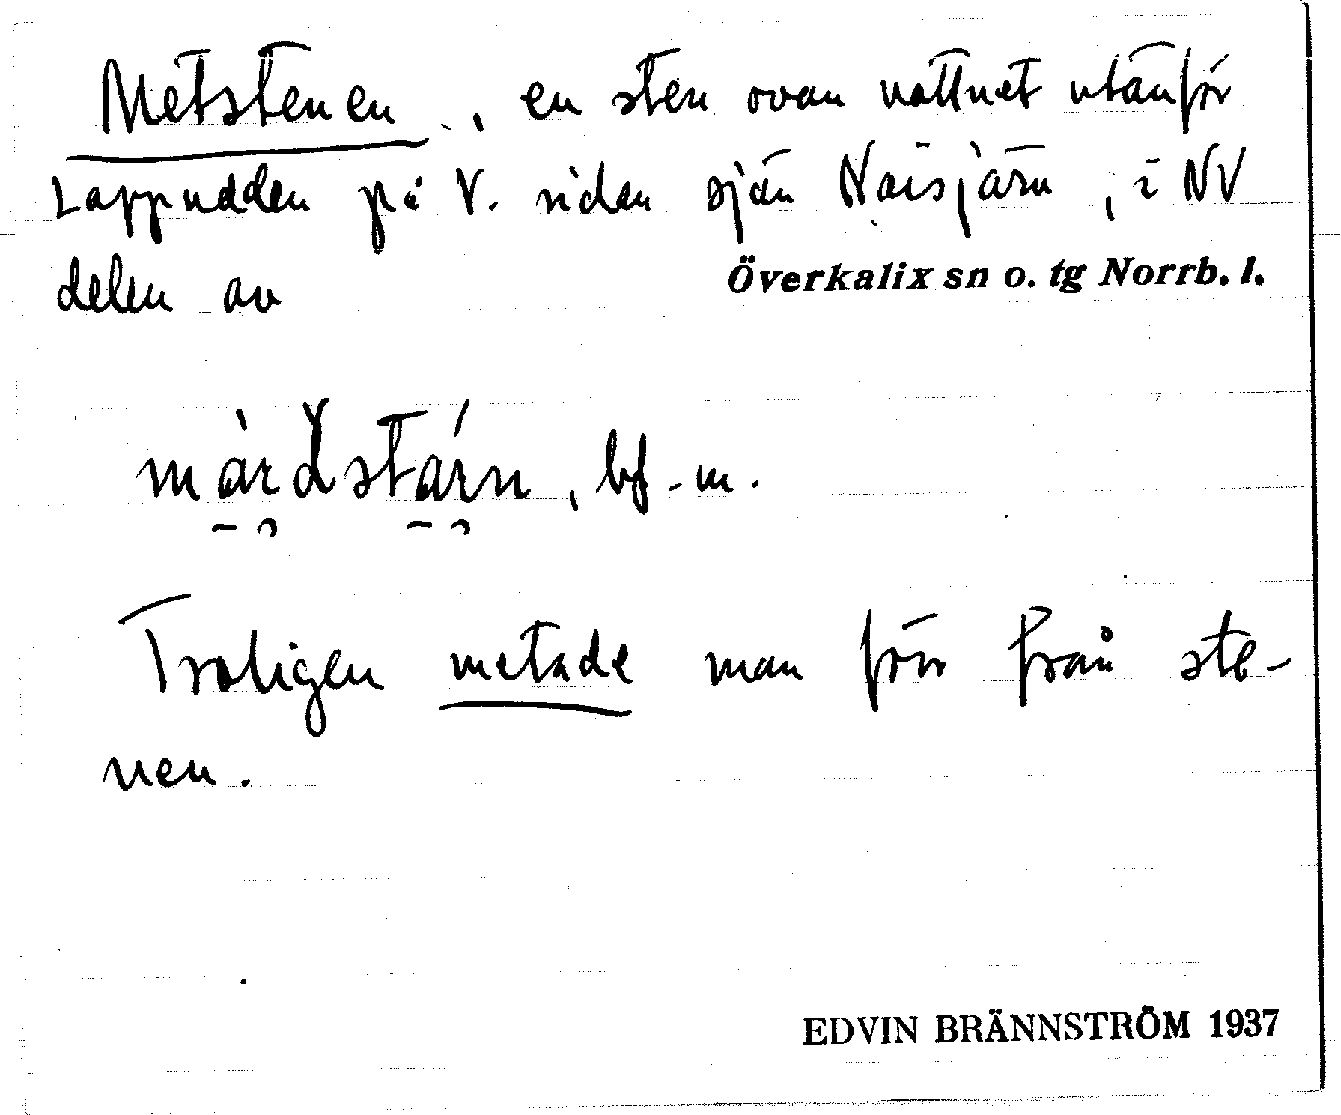 Metstenen, en sten ovan vattnet utanför
Lappudden på V. sidan sjön Naisjärv, i NV
delen av Överkalix sn o. tg Norrb. l.
bf. m.
Troligen metade man förr från ste-
nen.
EDVIN BRÄNNSTRÖM 1937